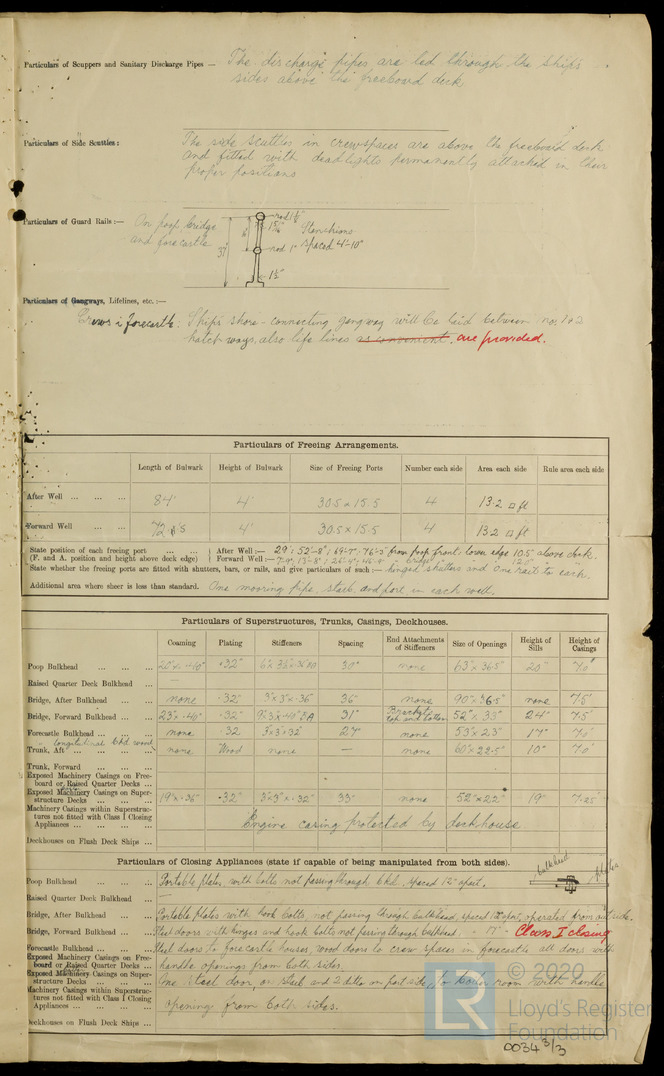 Particulars of Scuppers and Sanitary Discharge Pipes — The discharge pipes are led through the ship's
sides above the freeboard deck
Particulars of Side Scuttles: The side scuttles in crewspaces are above the freeboard deck
and fitted with deadlights permanently attached in their
proper positions
Particulars of Guard Rails:— On poop, bridge
and forecastle
rod 1½"
Stanchions
spaced 4'-10"
rod 1"
1½"
Particulars of Gangways, Lifelines, etc.:—
Crews in forecastle: Ship's shore-connecting gangway will be laid between no. 1 & 2
hatchways, also life lines as convenient, are provided.
Particulars of Freeing Arrangements.
Length of Bulwark Height of Bulwark Size of Freeing Ports Number each side Area each side Rule area each side
After Well 84' 4' 30.5 x 15.5 4 13.2 □ ft
Forward Well 72. 5 4' 30.5 x 15.5 4 13.2 □ ft
State position of each freeing port After Well:— 29'; 52'-8"; 64'-7"; 76'-3" from poop front lower edge 10.5 above deck.
(F. and A. position and height above deck edge) Forward Well:—
State whether the freeing ports are fitted with shutters, bars, or rails, and give particulars of such:— hinged shutters and one rail to each.
Additional area where sheer is less than standard. One mooring pipe, starb and port in each well.
Particulars of Superstructures, Trunks, Casings, Deckhouses.
Coaming Plating Stiffeners Spacing End Attachments of Stiffeners Size of Openings Height of Sills Height of Casings
Poop Bulkhead .32" 30" none 63" x 36.5" 20" 7.0'
Raised Quarter Deck Bulkhead —
Bridge, After Bulkhead none .32" 3" x 3" x .36" 36" none 90" x 36.5" none 7.5'
Bridge, Forward Bulkhead 23" x .40" .32" 31" Brackets top and bottom 52" x 33" 24" 7.5'
Forecastle Bulkhead none .32 3" x 3" x .32" 27" none 53" x 23" 17" 7.0'
Trunk, Aft none Wood none — none 60" x 22.5" 10" 7.0'
Trunk, Forward
Exposed Machinery Casings on Freeboard or Raised Quarter Decks
Exposed Machinery Casings on Superstructure Decks 19" x .36" .32" 3" x 3" x .32" 33" none 52" x 22" 19" 7.25'
Machinery Casings within Superstructures not fitted with Class I Closing Appliances Engine casing protected by deckhouse
Deckhouses on Flush Deck Ships
Particulars of Closing Appliances (state if capable of being manipulated from both sides).
bulkhead plates
Poop Bulkhead Portable plates, with bolts not passing through bkd. spaced 12" apart.
Raised Quarter Deck Bulkhead —
Bridge, After Bulkhead Portable plates with hook bolts, not passing through bulkhead, spaced 12" apart, operated from outside.
Bridge, Forward Bulkhead Steel doors with hinges and hook bolts not passing through bulkhead - 17" - Class I closing
Forecastle Bulkhead Steel doors to forecastle houses, wood doors to crew spaces in forecastle all doors with
Exposed Machinery Casings on Freeboard or Raised Quarter Decks handle openings from both sides.
Exposed Machinery Casings on Superstructure Decks One steel door on starb and 2 ditto on port side, to boiler room with handle
Machinery Casings within Superstructures not fitted with Class I Closing Appliances opening from both sides.
Deckhouses on Flush Deck Ships
© 2020
LR
Lloyd's Register
Foundation
0034 3/3